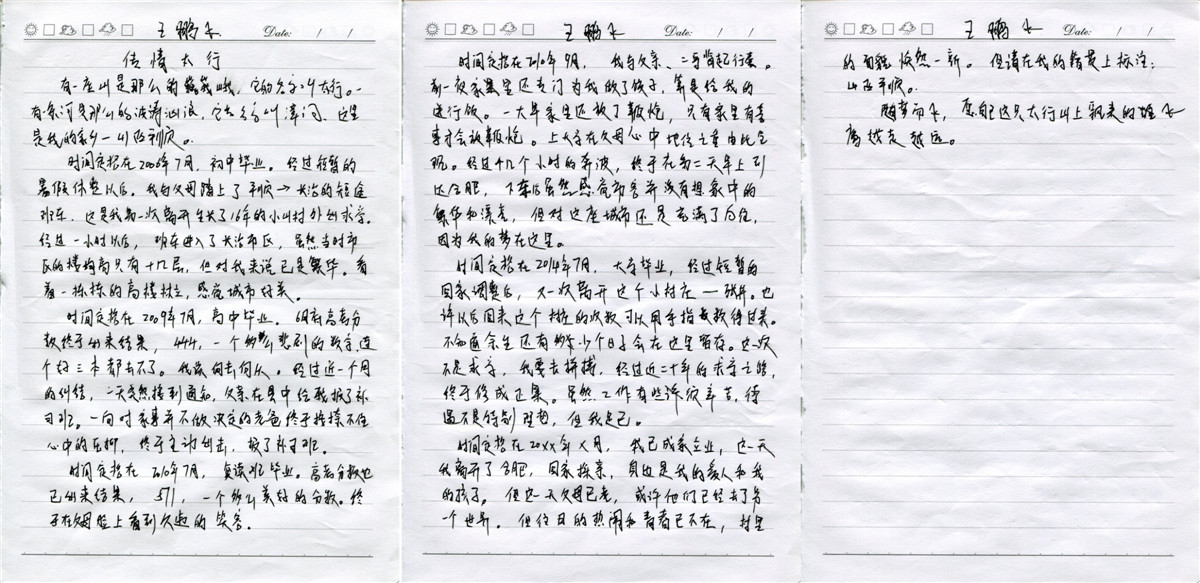 王鹏飞 Date: / /
传情太行
有一座山是那么的巍巍峨峨，它的名字叫太行。一
有条河是那么的波涛汹浪，它名字叫漳河、这里
是我的家乡—山西平顺。
时间定格在2006年7月，初中毕业。经过短暂的
暑假休整以后。我和父母踏上了平顺→长治的短途
班车，这是我第一次离开生长了16年的小山村外出求学。
经过一小时以后，响车进入了长治市区，虽然当时市
区的楼均高只有十几层，但对我来说已是繁华。看
着一栋栋的高楼林立，感觉城市好美。
时间定格在2009年7月，高中毕业。6月底高考分
数终于出来结果，444，一个多么悲剧的数字，连
个好三本都去不了。我该何去何从。经过近一个月
的纠结，一天突然接到通知，父亲在县中给我报了补
习班。一向对家事并不做决定的老爸终于按捺不住
心中的压抑，终于主动出击，报了补习班。
时间定格在2010年7月，复读班毕业。高考分数也
已出来结果，571，一个多么美好的分数。终
于在父母脸上看到久违的笑容。
王鹏飞 Date: / /
时间定格在2010年9月，我与父亲、二哥背起行囊。
前一夜家里还专门为我做了饺子，算是给我的
送行饭。一大早家里还放了鞭炮，只有家里有喜
事才会放鞭炮。上大学在父母心中地位之重由此可
见。经过十几个小时的奔波，终于在第二天早上到
达合肥，下车后虽然感觉市容并没有想象中的
繁华和漂亮，但对这座城市还是充满了向往，
因为我的梦在这里。
时间定格在2014年7月，大学毕业，经过短暂的
回家调整后，又一次离开这个小村庄——张井。也
许以后回来这个村庄的次数可以用手指头数得过来。
不知道余生还有多少个日子会在这里留存。这一次
不是求学，我要去拼搏，经过近二十年的求学之路，
终于修成正果。虽然工作有些许艰辛，待
遇不是特别理想，但我足已。
时间定格在20XX年X月，我已成家立业，这一天
我离开了合肥，回家探亲，身边是我的爱人和我
的孩子。但这一天父母已老，或许他们已经去了另
一个世界。但往日的热闹和青春已不在，村里
王鹏飞 Date: / /
的面貌焕然一新。但请在我的籍贯上标注：
山西平顺。
随梦而飞，愿自己这只太行山上飘来的雄
鹰越走越远。